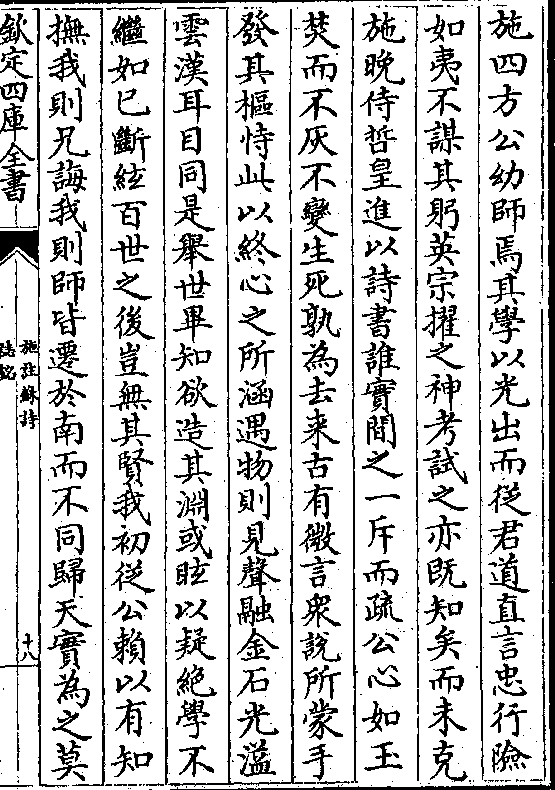 施四方公幼師焉其學以光出而從君道直言忠行險
如夷不謀其躬英宗擢之神考試之亦既知矣而未克
施晚侍哲皇進以詩書誰實間之一斥而疏公心如玉
焚而不灰不變生死孰為去來古有微言衆說所蒙手
發其樞恃此以終心之所涵遇物則見聲融金石光溢
雲漢耳目同是舉世畢知欲造其淵或眩以疑絶學不
繼如已斷絃百世之後豈無其賢我初從公賴以有知
撫我則兄誨我則師皆遷於南而不同歸天實為之莫
欽定四庫全書
施註蘇詩
誌銘
十八